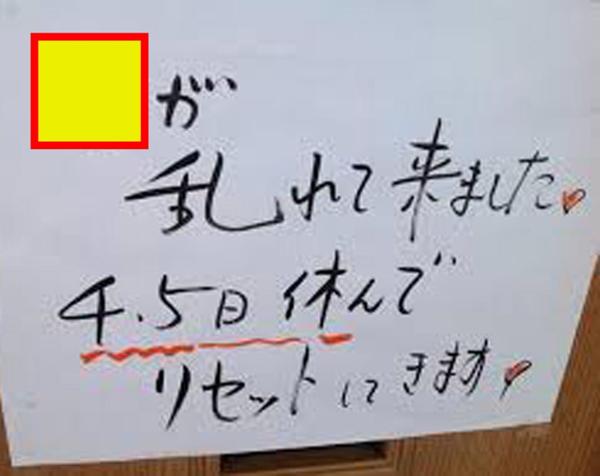 が
乱れて来ました
4.5日休んで
リセットにきます